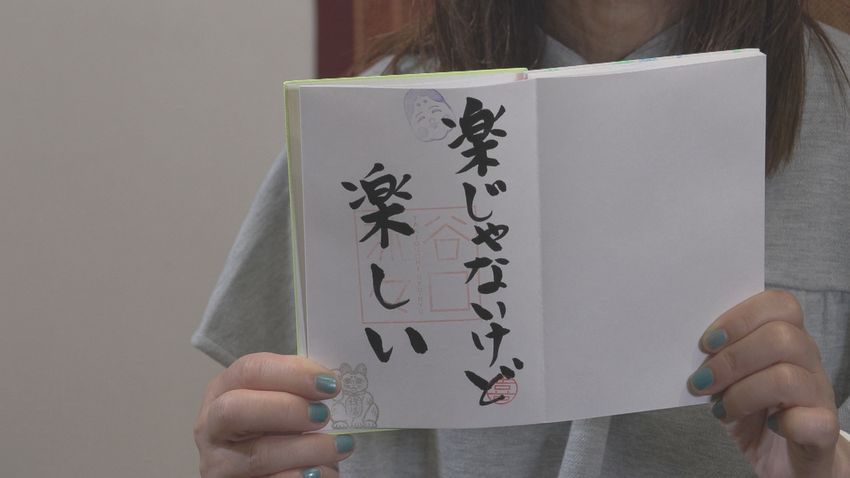 楽じゃないけど
楽しい
谷口